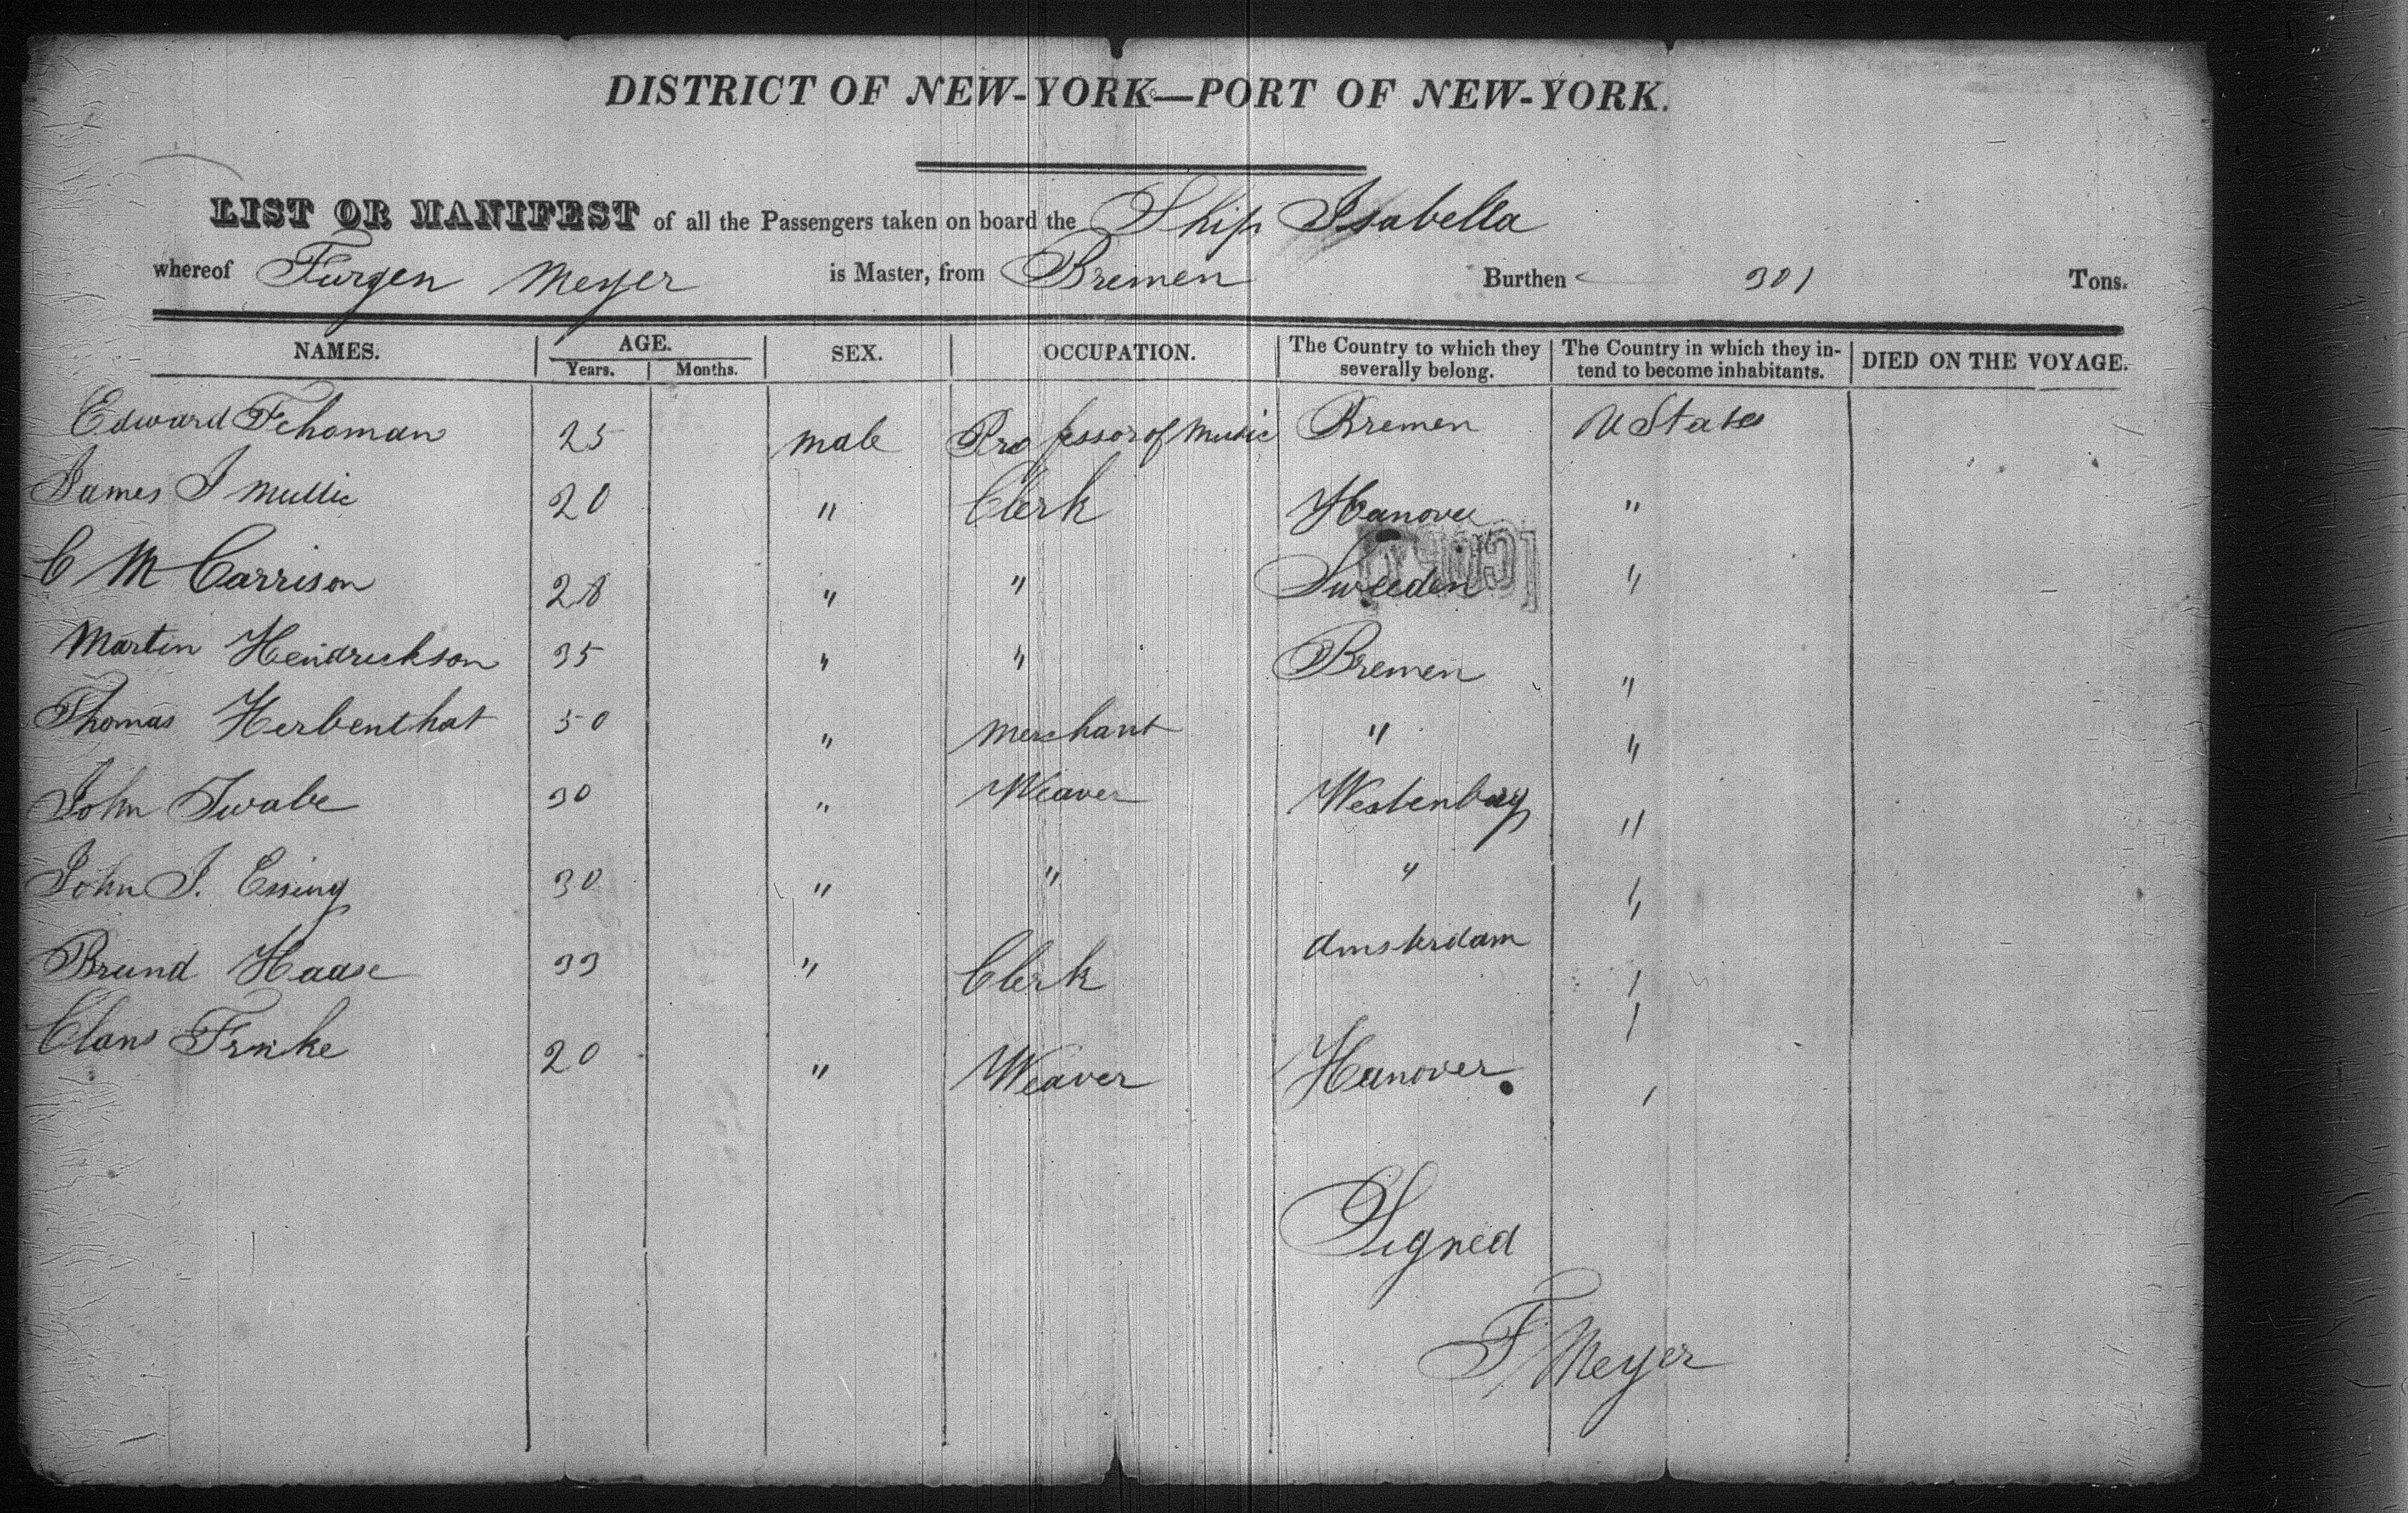 DISTRICT OF NEW-YORK—PORT OF NEW-YORK.
LIST OR MANIFEST of all the Passengers taken on board the Ship Isabella
whereof Furgen Meyer is Master, from Bremen Burthen 301 Tons.
NAMES. AGE. Years. Months. SEX. OCCUPATION. The Country to which they severally belong. The Country in which they intend to become inhabitants. DIED ON THE VOYAGE.
Edward Fehoman 25 male Professor of Music Bremen U States
James J Mullic 20 " Clerk Hanover "
C M Carrison 28 " " Sweeden "
[COPY]
Martin Hendrickson 35 " " Bremen "
Thomas Herbenthat 50 " Merchant " "
John Swabe 30 " Weaver Westenbury "
John J. Essing 30 " " " "
Brund Haase 33 " Clerk Amsterdam "
Clans Frnke 20 " Weaver Hanover. "
Signed
F Meyer